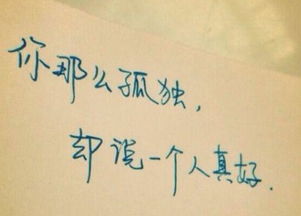 你那么孤独，
却说一个人真好.